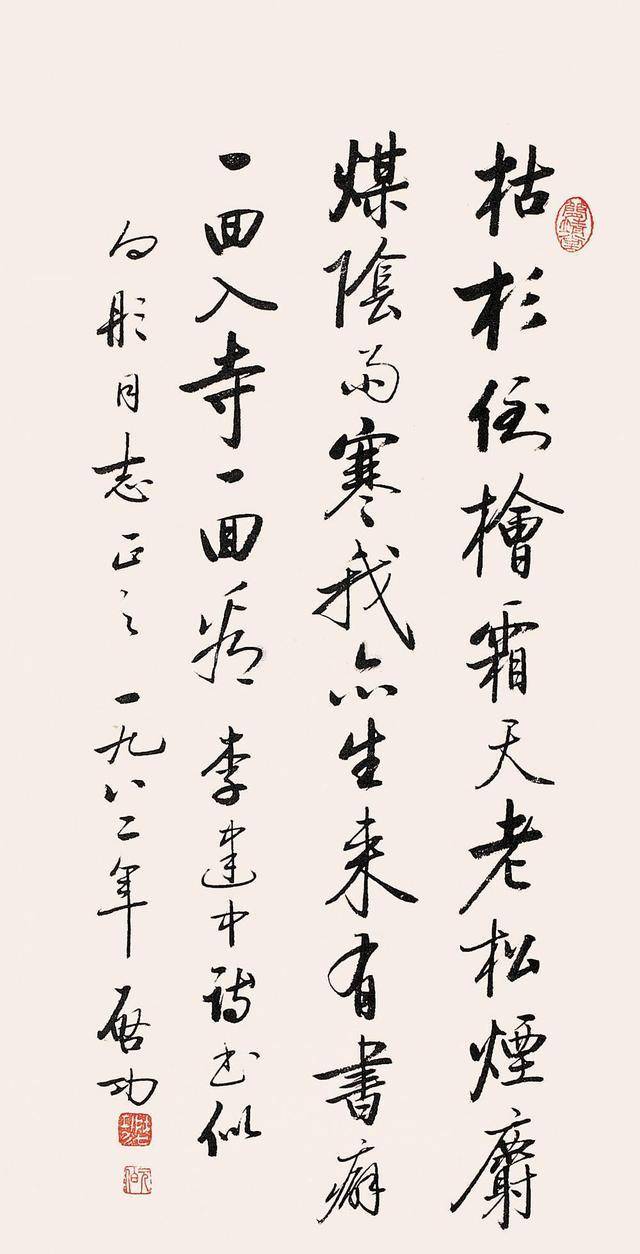 枯杉倒檜霜天老松煙麝
煤陰雨寒我亦生来有書癖
一回入寺一回看 李建中詩書似
彤同志正之 一九八二年 啓功